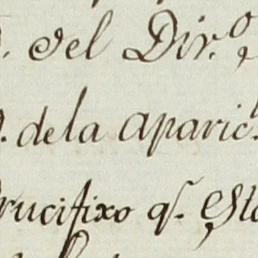 del Div.º
dela aparic.ⁿ
crucifixo q.ᵉ está